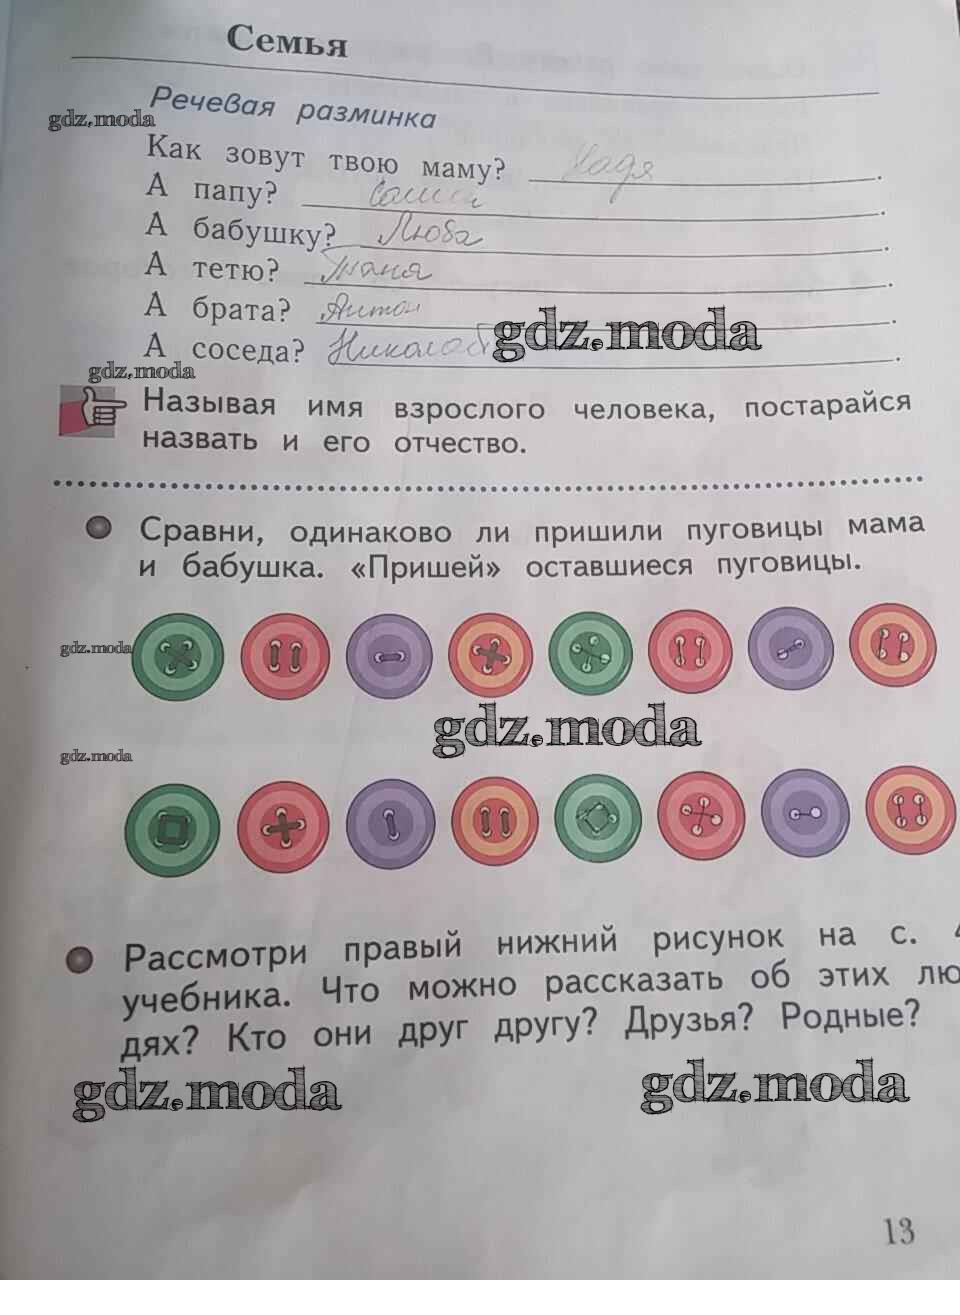 Семья
Речевая разминка
gdz.moda
Как зовут твою маму? Надя.
А папу? Саша.
А бабушку? Люба.
А тетю? Таня.
А брата? Антон.
gdz.moda
А соседа?
gdz.moda
Называя имя взрослого человека, постарайся
назвать и его отчество.
Сравни, одинаково ли пришили пуговицы мама
и бабушка. «Пришей» оставшиеся пуговицы.
gdz.moda
gdz.moda
gdz.moda
Рассмотри правый нижний рисунок на с. 4
учебника. Что можно рассказать об этих лю
дях? Кто они друг другу? Друзья? Родные?
gdz.moda
gdz.moda
13